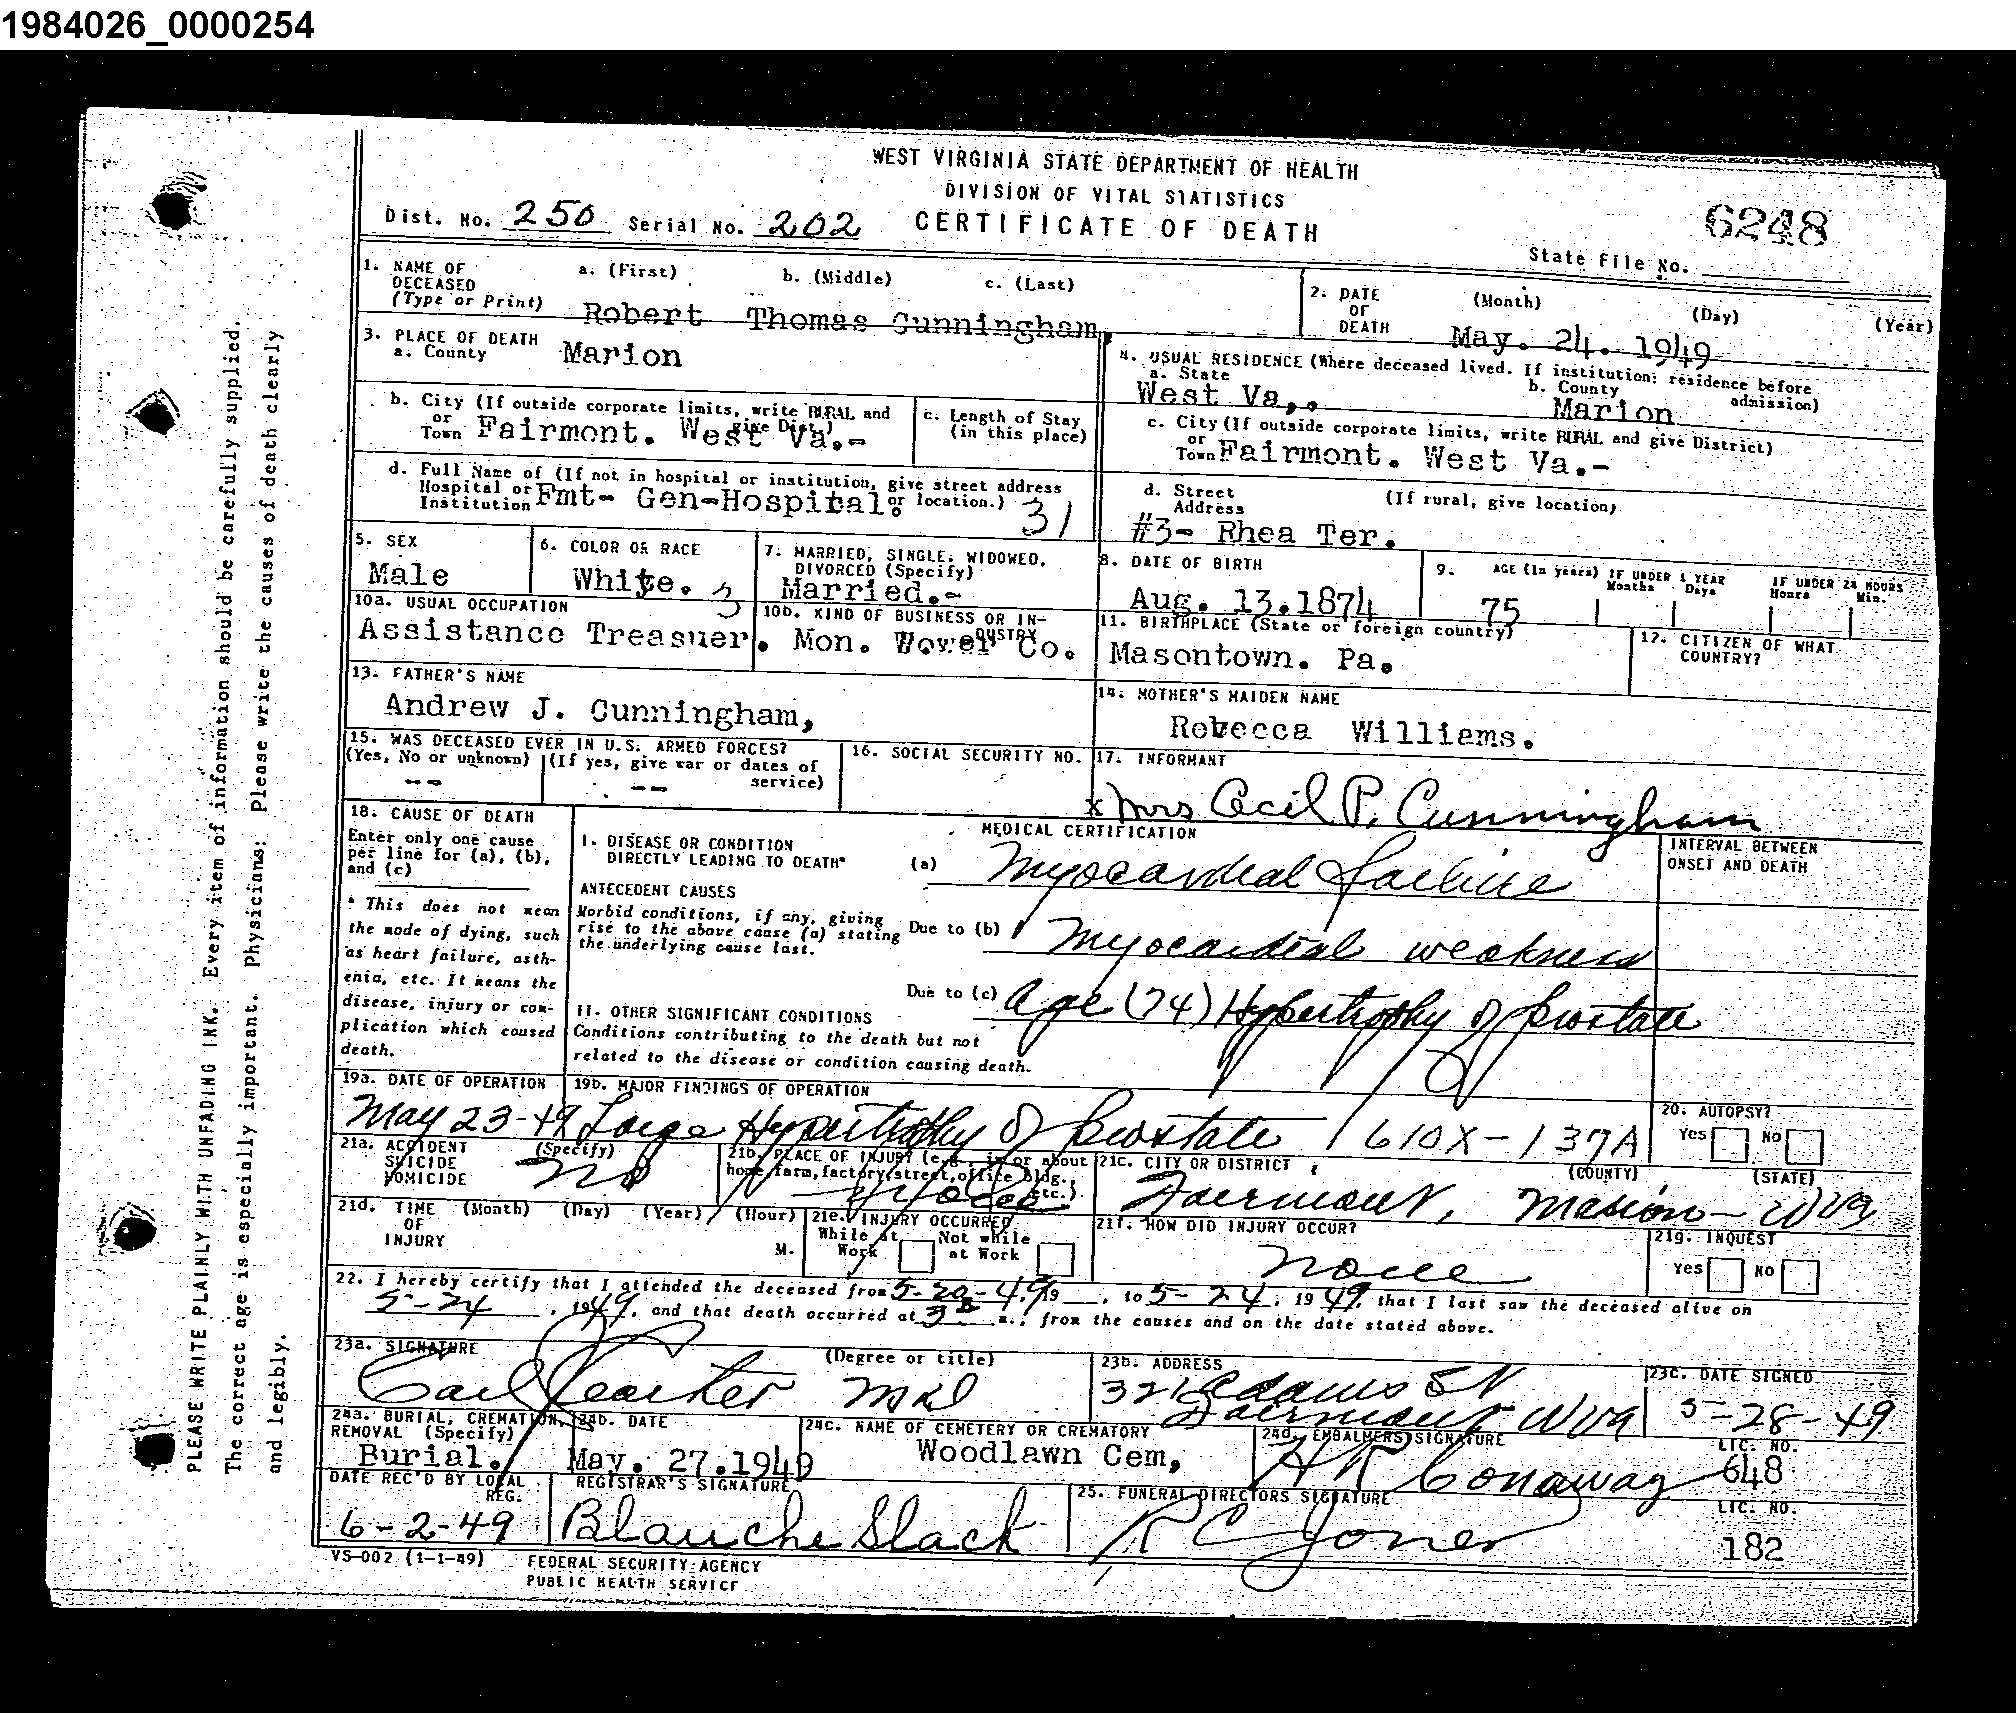 1984026_0000254
WEST VIRGINIA STATE DEPARTMENT OF HEALTH
DIVISION OF VITAL STATISTICS
Dist. No. 250 Serial No. 202 CERTIFICATE OF DEATH
6248
State File No.
1. NAME OF DECEASED (Type or Print) a. (First) b. (Middle) c. (Last)
Robert Thomas Cunningham,
2. DATE OF DEATH (Month) (Day) (Year)
May. 24. 1949
3. PLACE OF DEATH
a. County Marion
4. USUAL RESIDENCE (Where deceased lived. If institution: residence before admission)
a. State West Va,. b. County Marion
b. City (If outside corporate limits, write RURAL and give Dist.)
or Town Fairmont. West Va.-
c. Length of Stay (in this place)
c. City (If outside corporate limits, write RURAL and give District)
or Town Fairmont. West Va.-
d. Full Name of (If not in hospital or institution, give street address or location.)
Hospital or Institution Fmt- Gen-Hospital. 31
d. Street Address (If rural, give location)
#3- Rhea Ter.
5. SEX
Male
6. COLOR OR RACE
White.
7. MARRIED, SINGLE, WIDOWED, DIVORCED (Specify)
Married.-
8. DATE OF BIRTH
Aug. 13.1874
9. AGE (In years) IF UNDER 1 YEAR Months Days IF UNDER 24 HOURS Hours Min.
75
10a. USUAL OCCUPATION
Assistance Treasuer.
10b. KIND OF BUSINESS OR INDUSTRY
Mon. Wower Co.
11. BIRTHPLACE (State or foreign country)
Masontown. Pa.
12. CITIZEN OF WHAT COUNTRY?
13. FATHER'S NAME
Andrew J. Cunningham,
14. MOTHER'S MAIDEN NAME
Rebecca Williams.
15. WAS DECEASED EVER IN U.S. ARMED FORCES?
(Yes, No or unknown) (If yes, give war or dates of service)
-- --
16. SOCIAL SECURITY NO.
17. INFORMANT
x Mrs Cecil P. Cunningham
18. CAUSE OF DEATH
Enter only one cause per line for (a), (b), and (c)
* This does not mean the mode of dying, such as heart failure, asthenia, etc. It means the disease, injury or complication which caused death.
MEDICAL CERTIFICATION
INTERVAL BETWEEN ONSET AND DEATH
I. DISEASE OR CONDITION DIRECTLY LEADING TO DEATH* (a) Myocardial failure
ANTECEDENT CAUSES
Morbid conditions, if any, giving rise to the above cause (a) stating the underlying cause last.
Due to (b) Myocardial weakness
Due to (c) Age (74) Hypertrophy of prostate
II. OTHER SIGNIFICANT CONDITIONS
Conditions contributing to the death but not related to the disease or condition causing death.
19a. DATE OF OPERATION
May 23-49
19b. MAJOR FINDINGS OF OPERATION
Large Hypertrophy of prostate 610X-137A
20. AUTOPSY?
Yes No
21a. ACCIDENT SUICIDE HOMICIDE (Specify)
No
21b. PLACE OF INJURY (e.g., in or about home, farm, factory, street, office bldg., etc.)
21c. CITY OR DISTRICT (COUNTY) (STATE)
Fairmont, Marion - WVa
21d. TIME OF INJURY (Month) (Day) (Year) (Hour) M.
21e. INJURY OCCURRED
While at Work Not while at Work
21f. HOW DID INJURY OCCUR?
None
21g. INQUEST
Yes No
22. I hereby certify that I attended the deceased from 5-20-49, 19, to 5-24, 1949, that I last saw the deceased alive on
5-24, 1949, and that death occurred at 3 m., from the causes and on the date stated above.
23a. SIGNATURE (Degree or title)
Carl Carter MD
23b. ADDRESS
321 Adams St
Fairmont WVa
23c. DATE SIGNED
5-28-49
24a. BURIAL, CREMATION, REMOVAL (Specify)
Burial.
24b. DATE
May. 27.1949
24c. NAME OF CEMETERY OR CREMATORY
Woodlawn Cem,
24d. EMBALMERS SIGNATURE LIC. NO.
Conaway 648
DATE REC'D BY LOCAL REG.
6-2-49
REGISTRAR'S SIGNATURE
Blanche Slack
25. FUNERAL DIRECTORS SIGNATURE LIC. NO.
R C Jones 182
VS-002 (1-1-49) FEDERAL SECURITY AGENCY
PUBLIC HEALTH SERVICE
PLEASE WRITE PLAINLY WITH UNFADING INK. Every item of information should be carefully supplied.
The correct age is especially important. Physicians: Please write the causes of death clearly
and legibly.